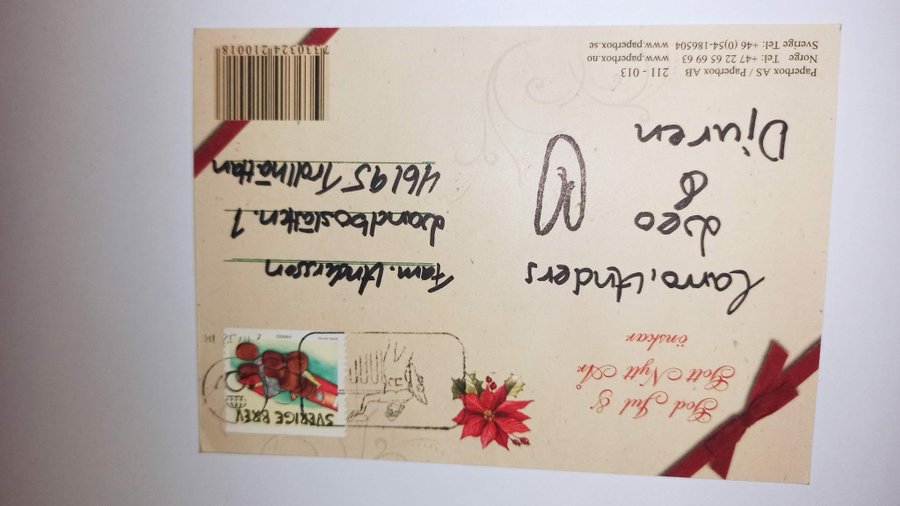 God Jul &
Gott Nytt År
önskar
SVERIGE BREV
Anders
Leo
&
Djuren
Fam. Andersson
Landboslätten. 1
46195 Trollhättan
Paperbox AS / Paperbox AB 211 - 013
Norge Tel: +47 22 65 69 63 www.paperbox.no
Sverige Tel: +46 (0)54-186504 www.paperbox.se
7330324210018